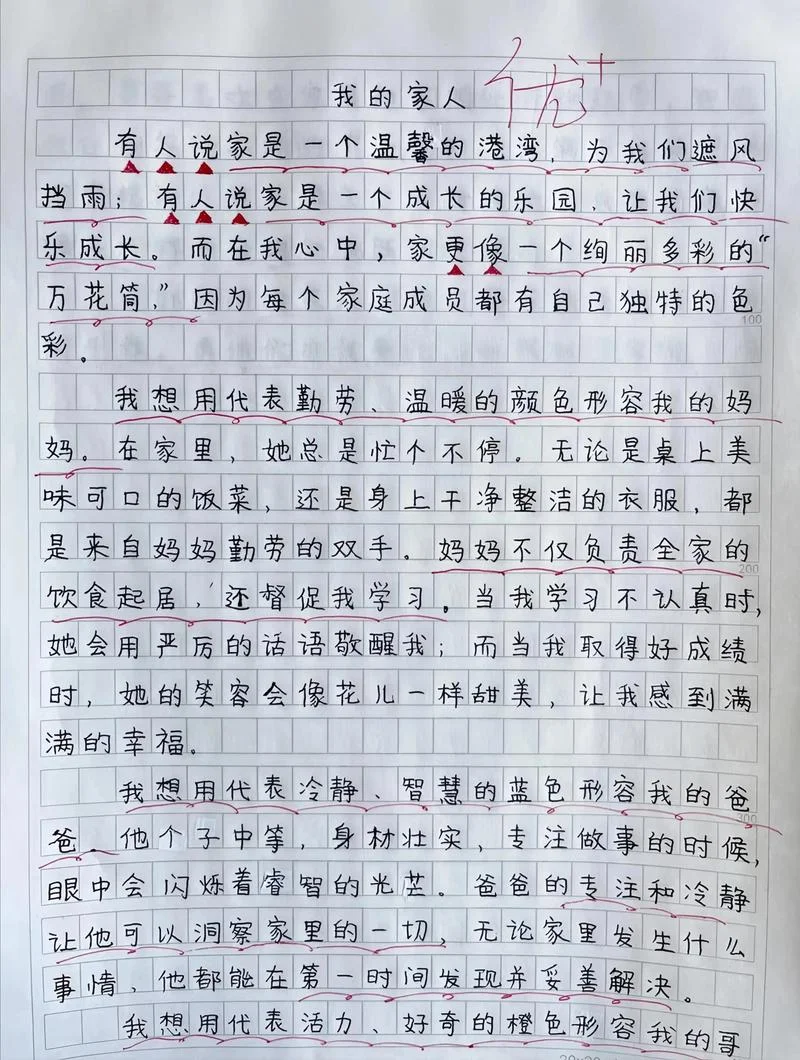 我的家人 优+
有人说家是一个温馨的港湾，为我们遮风
挡雨；有人说家是一个成长的乐园，让我们快
乐成长。而在我心中，家更像一个绚丽多彩的“
万花筒，”因为每个家庭成员都有自己独特的色
100
彩。
我想用代表勤劳、温暖的颜色形容我的妈
妈。在家里，她总是忙个不停。无论是桌上美
味可口的饭菜，还是身上干净整洁的衣服，都
是来自妈妈勤劳的双手。妈妈不仅负责全家的
200
饮食起居，还督促我学习。当我学习不认真时，
她会用严厉的话语敬醒我；而当我取得好成绩
时，她的笑容会像花儿一样甜美，让我感到满
满的幸福。
我想用代表冷静、智慧的蓝色形容我的爸
300
爸。他个子中等，身材壮实，专注做事的时候，
眼中会闪烁着睿智的光芒。爸爸的专注和冷静
让他可以洞察家里的一切，无论家里发生什么
事情，他都能在第一时间发现并妥善解决。
我想用代表活力、好奇的橙色形容我的哥